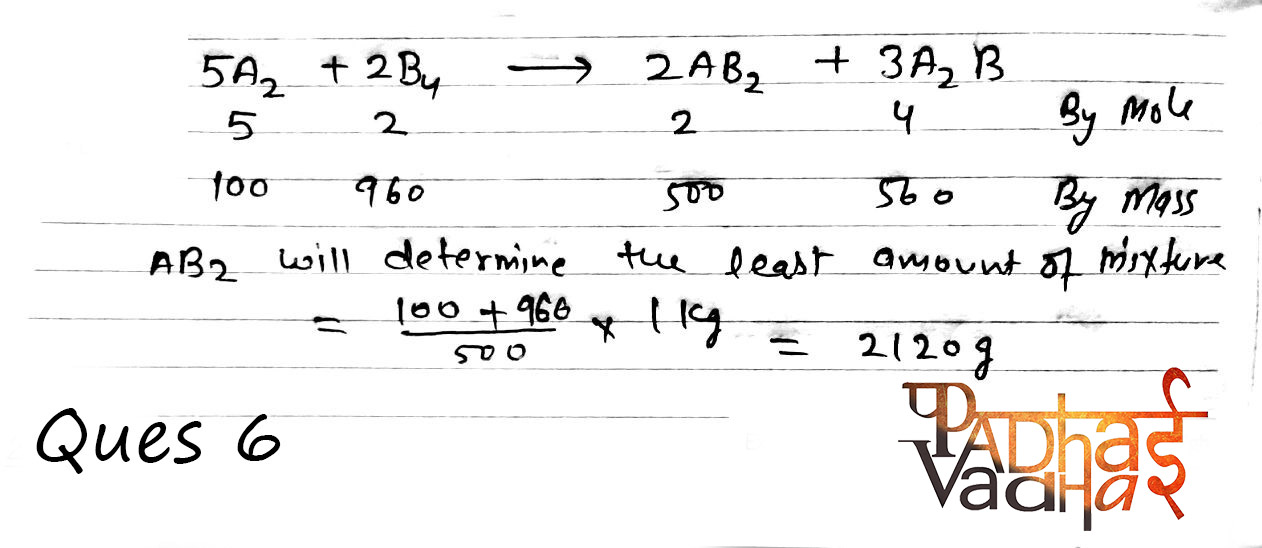 5A₂ + 2B₄ ⟶ 2AB₂ + 3A₂B
5 2 2 4 By Mole
100 960 500 560 By Mass
AB2 will determine the least amount of mixture
= (100 + 960)/500 × 1 kg = 2120g
Ques 6
PADhaई
VadHa